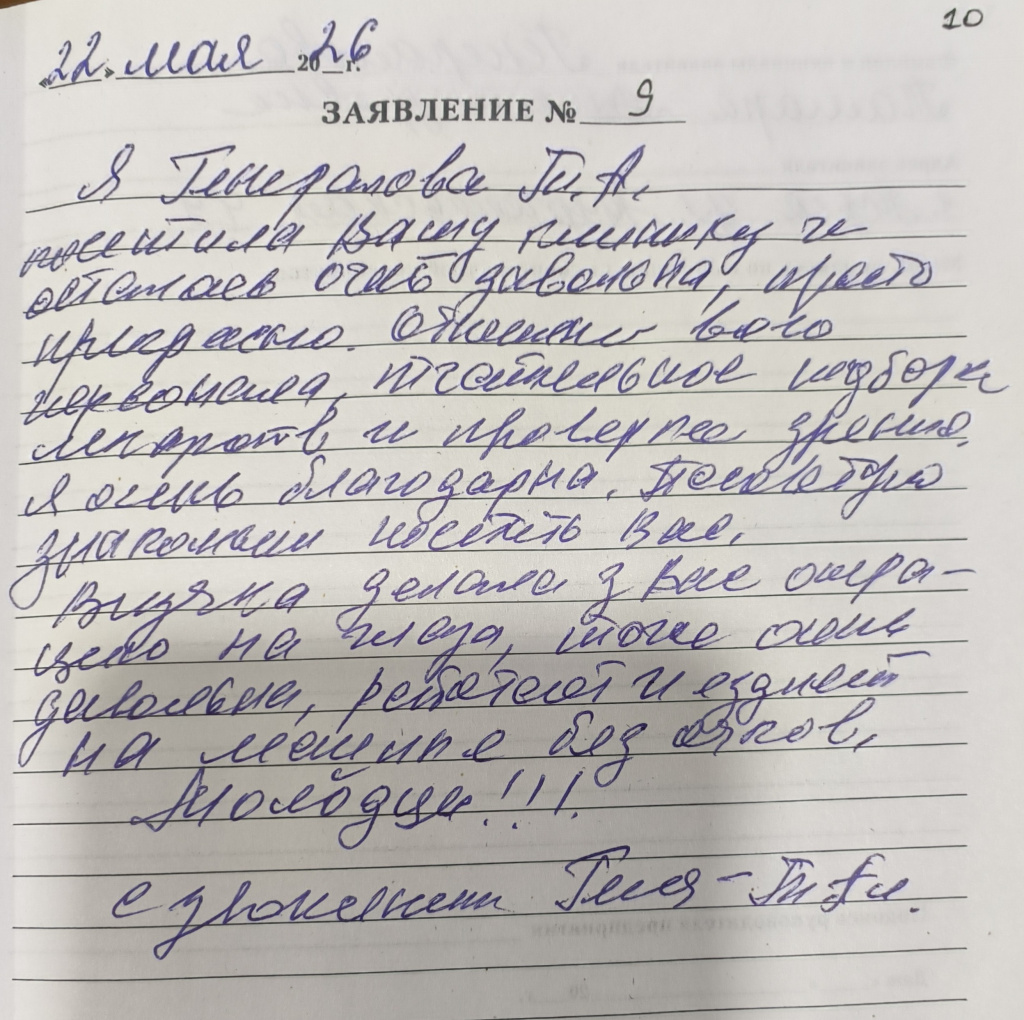 10
«22» мая 2026 г.
ЗАЯВЛЕНИЕ № 9
Я Генералова Т. А.
посетила Вашу клинику и
осталась очень довольна, просто
прекрасно. Отношение
персонала, тчательное подборка
лекарств и проверка зрения.
Я очень благодарна. Посоветую
знакомым посетить Вас.
Внучка делала у Вас опера-
цию на глаза, тоже очень
довольна, работает и ездиет
на машине без очков.
Молодцы!!!
С уважением